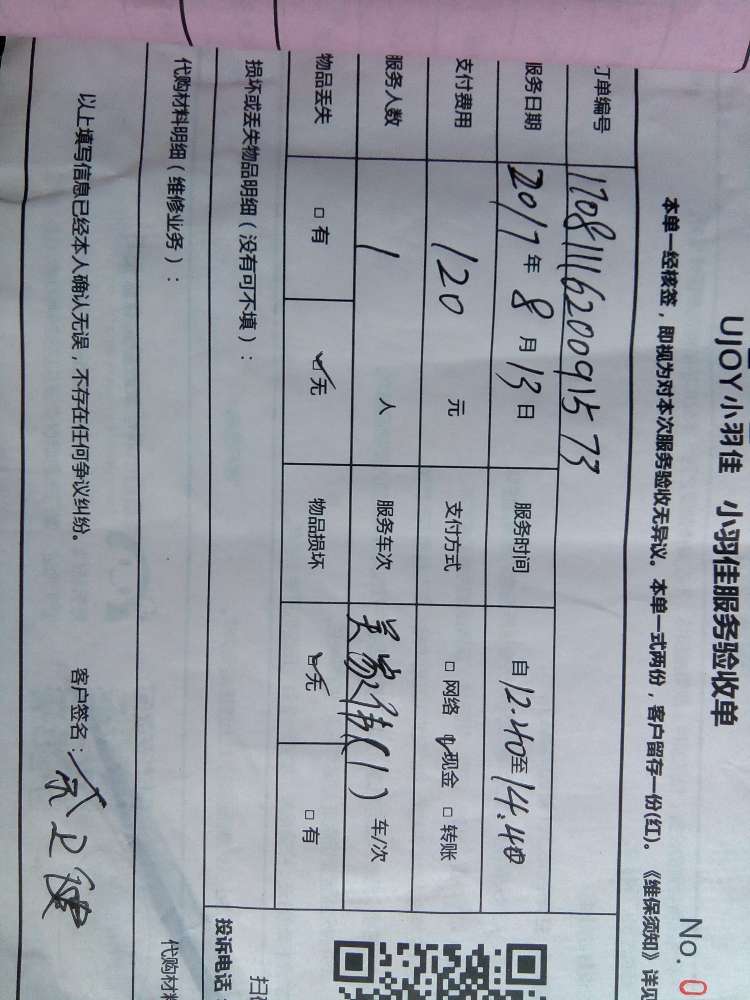 UJOY小羽佳 小羽佳服务验收单
No. 0
本单一经核签，即视为对本次服务验收无异议。本单一式两份，客户留存一份(红)。《维保须知》详见
订单编号 1708111620091573
服务日期 2017年8月13日 服务时间 自12.40至14.40
支付费用 120元 支付方式 □网络 ☑现金 □转账
服务人数 1人 服务车次 吴家伟(1)车/次
物品丢失 □有 ☑无 物品损坏 ☑无 □有
损坏或丢失物品明细（没有可不填）：
投诉电话：
代购材料明细（维修业务）：
代购材料
以上填写信息已经本人确认无误，不存在任何争议纠纷。 客户签名：